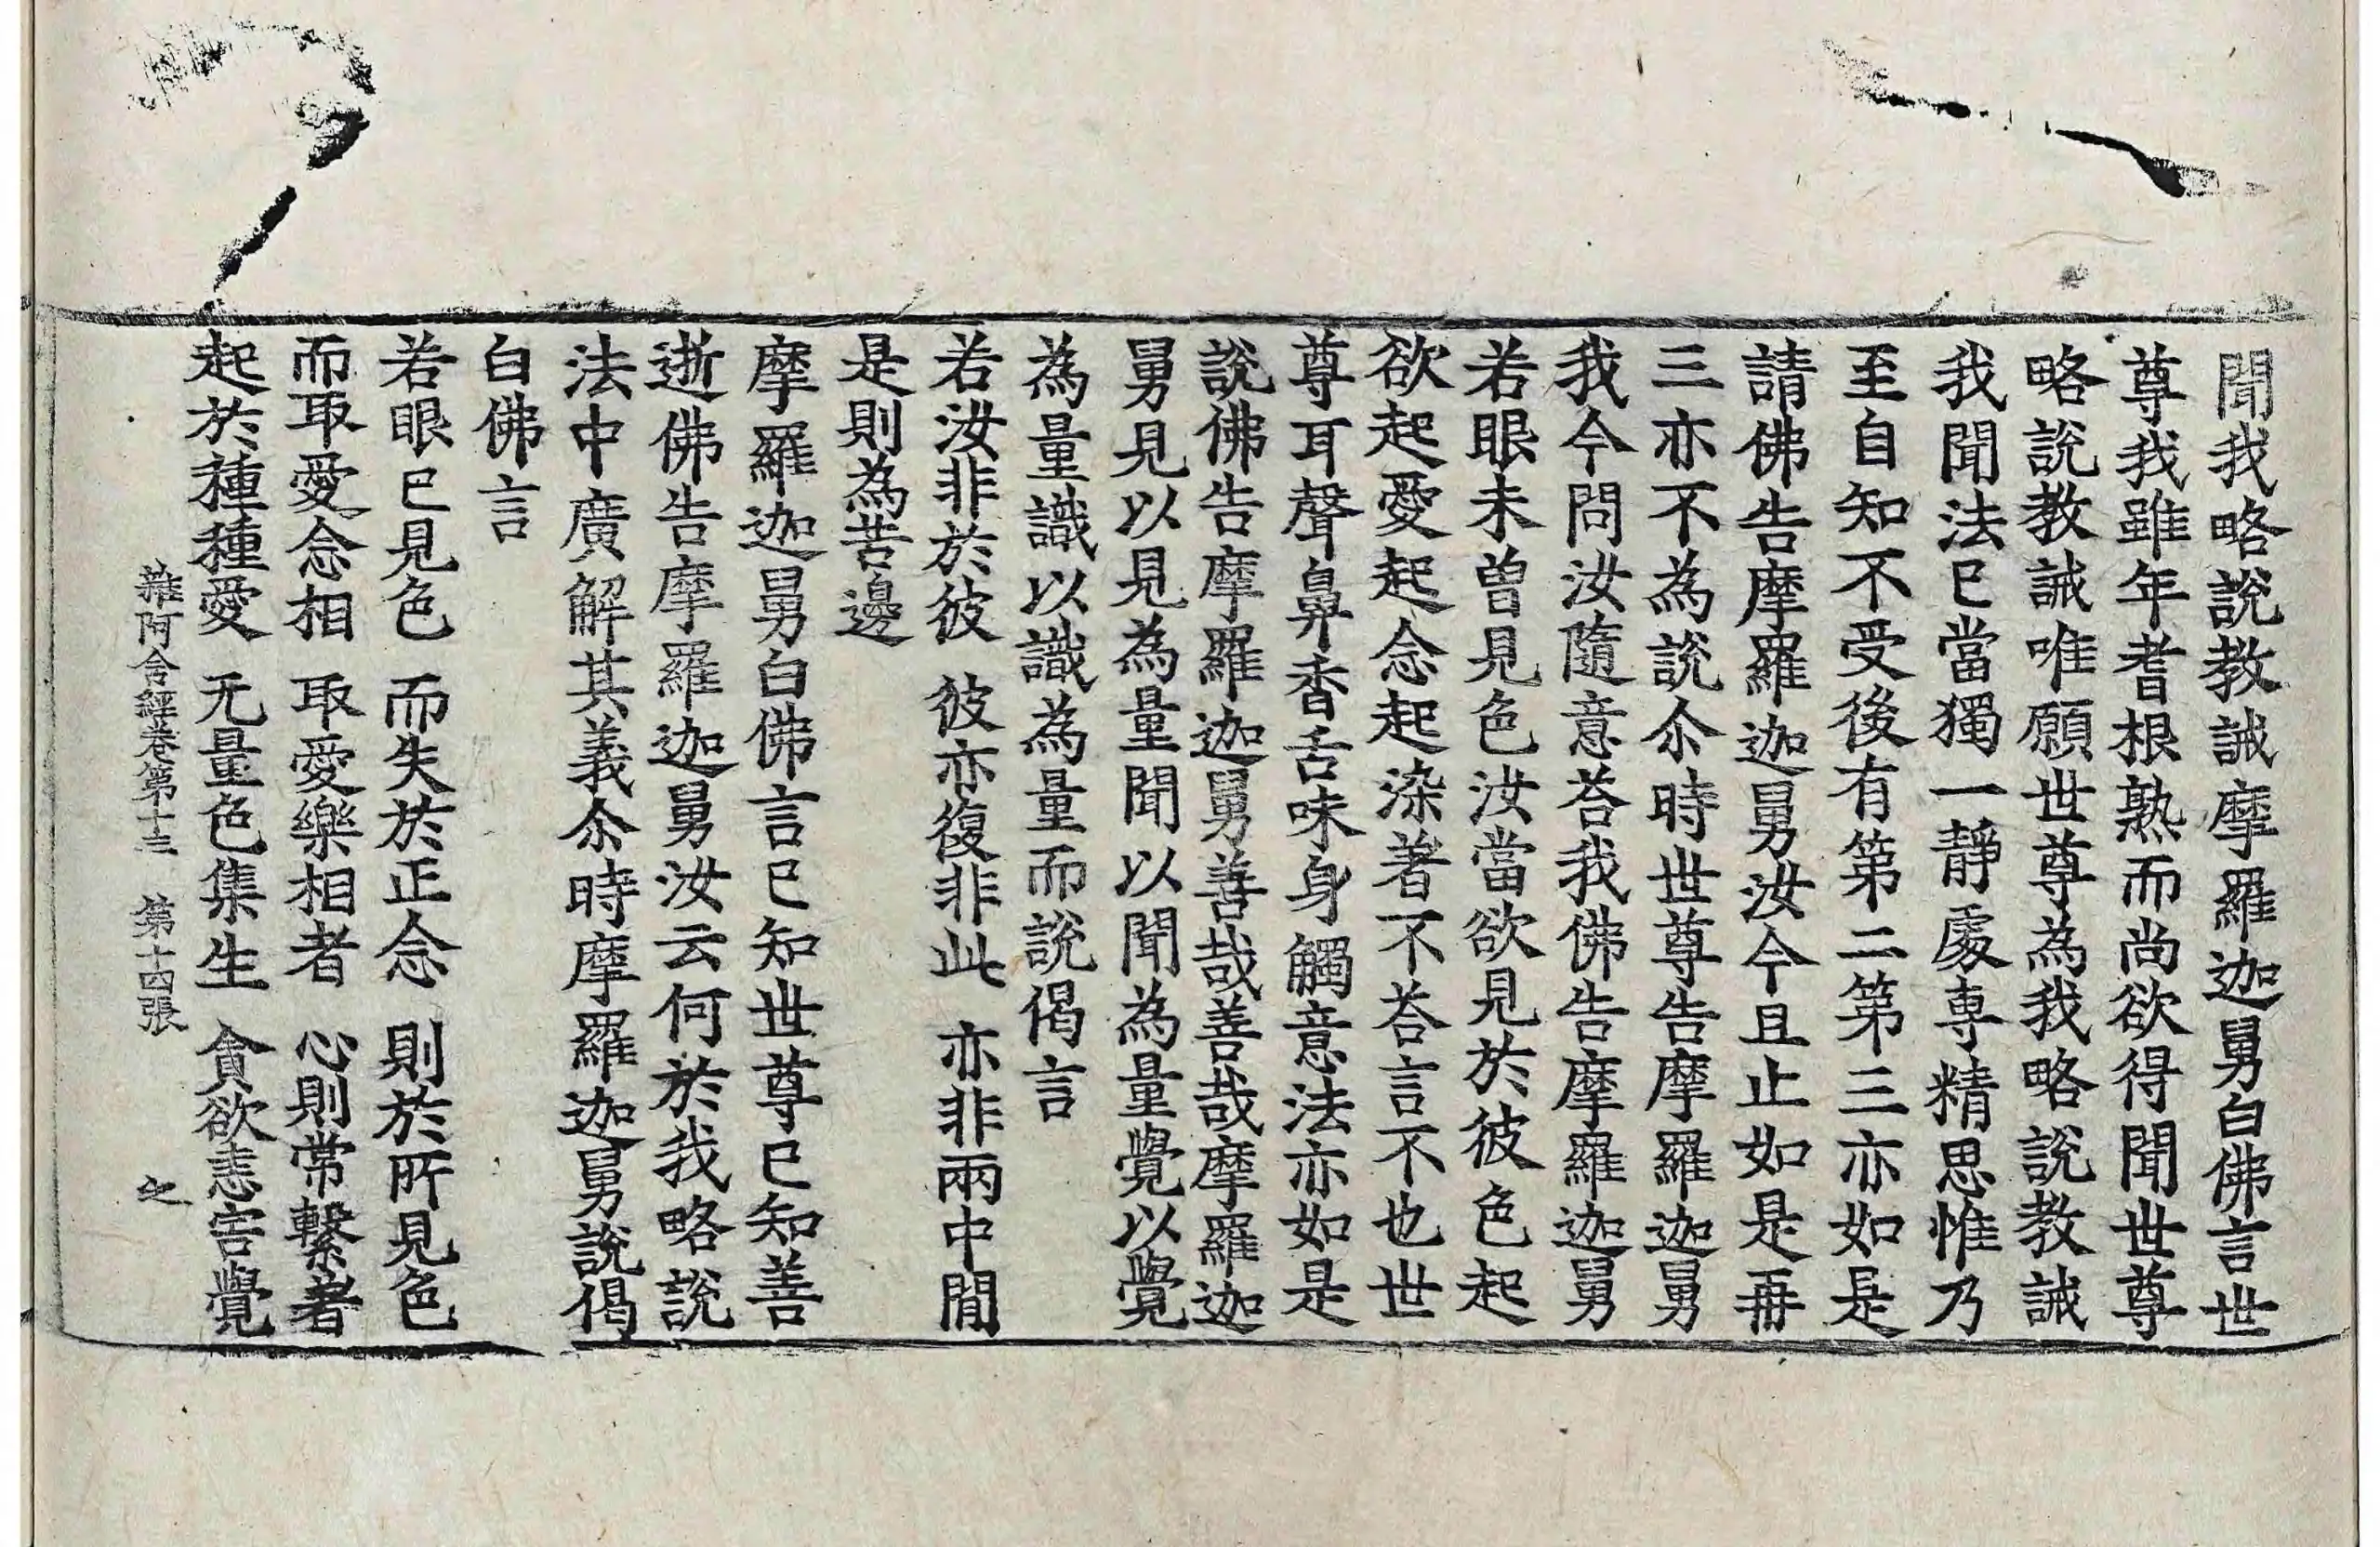 聞我略說教誡摩羅迦舅白佛言世
尊我雖年耆根熟而尚欲得聞世尊
略說教誡唯願世尊為我略說教誡
我聞法已當獨一靜處專精思惟乃
至自知不受後有第二第三亦如是
請佛告摩羅迦舅汝今且止如是再
三亦不為說尒時世尊告摩羅迦舅
我今問汝隨意荅我佛告摩羅迦舅
若眼未曾見色汝當欲見於彼色起
欲起愛起念起染著不荅言不也世
尊耳聲鼻香舌味身觸意法亦如是
說佛告摩羅迦舅善哉善哉摩羅迦
舅見以見為量聞以聞為量覺以覺
為量識以識為量而說偈言
若汝非於彼　彼亦復非此　亦非兩中閒
是則為苦邊
摩羅迦舅白佛言已知世尊已知善
逝佛告摩羅迦舅汝云何於我略說
法中廣解其義尒時摩羅迦舅說偈
白佛言
若眼已見色　而失於正念　則於所見色
而取愛念相　取愛樂相者　心則常繫著
起於種種愛　无量色集生　貪欲恚害覺
雜阿含經卷第十三　第十四張